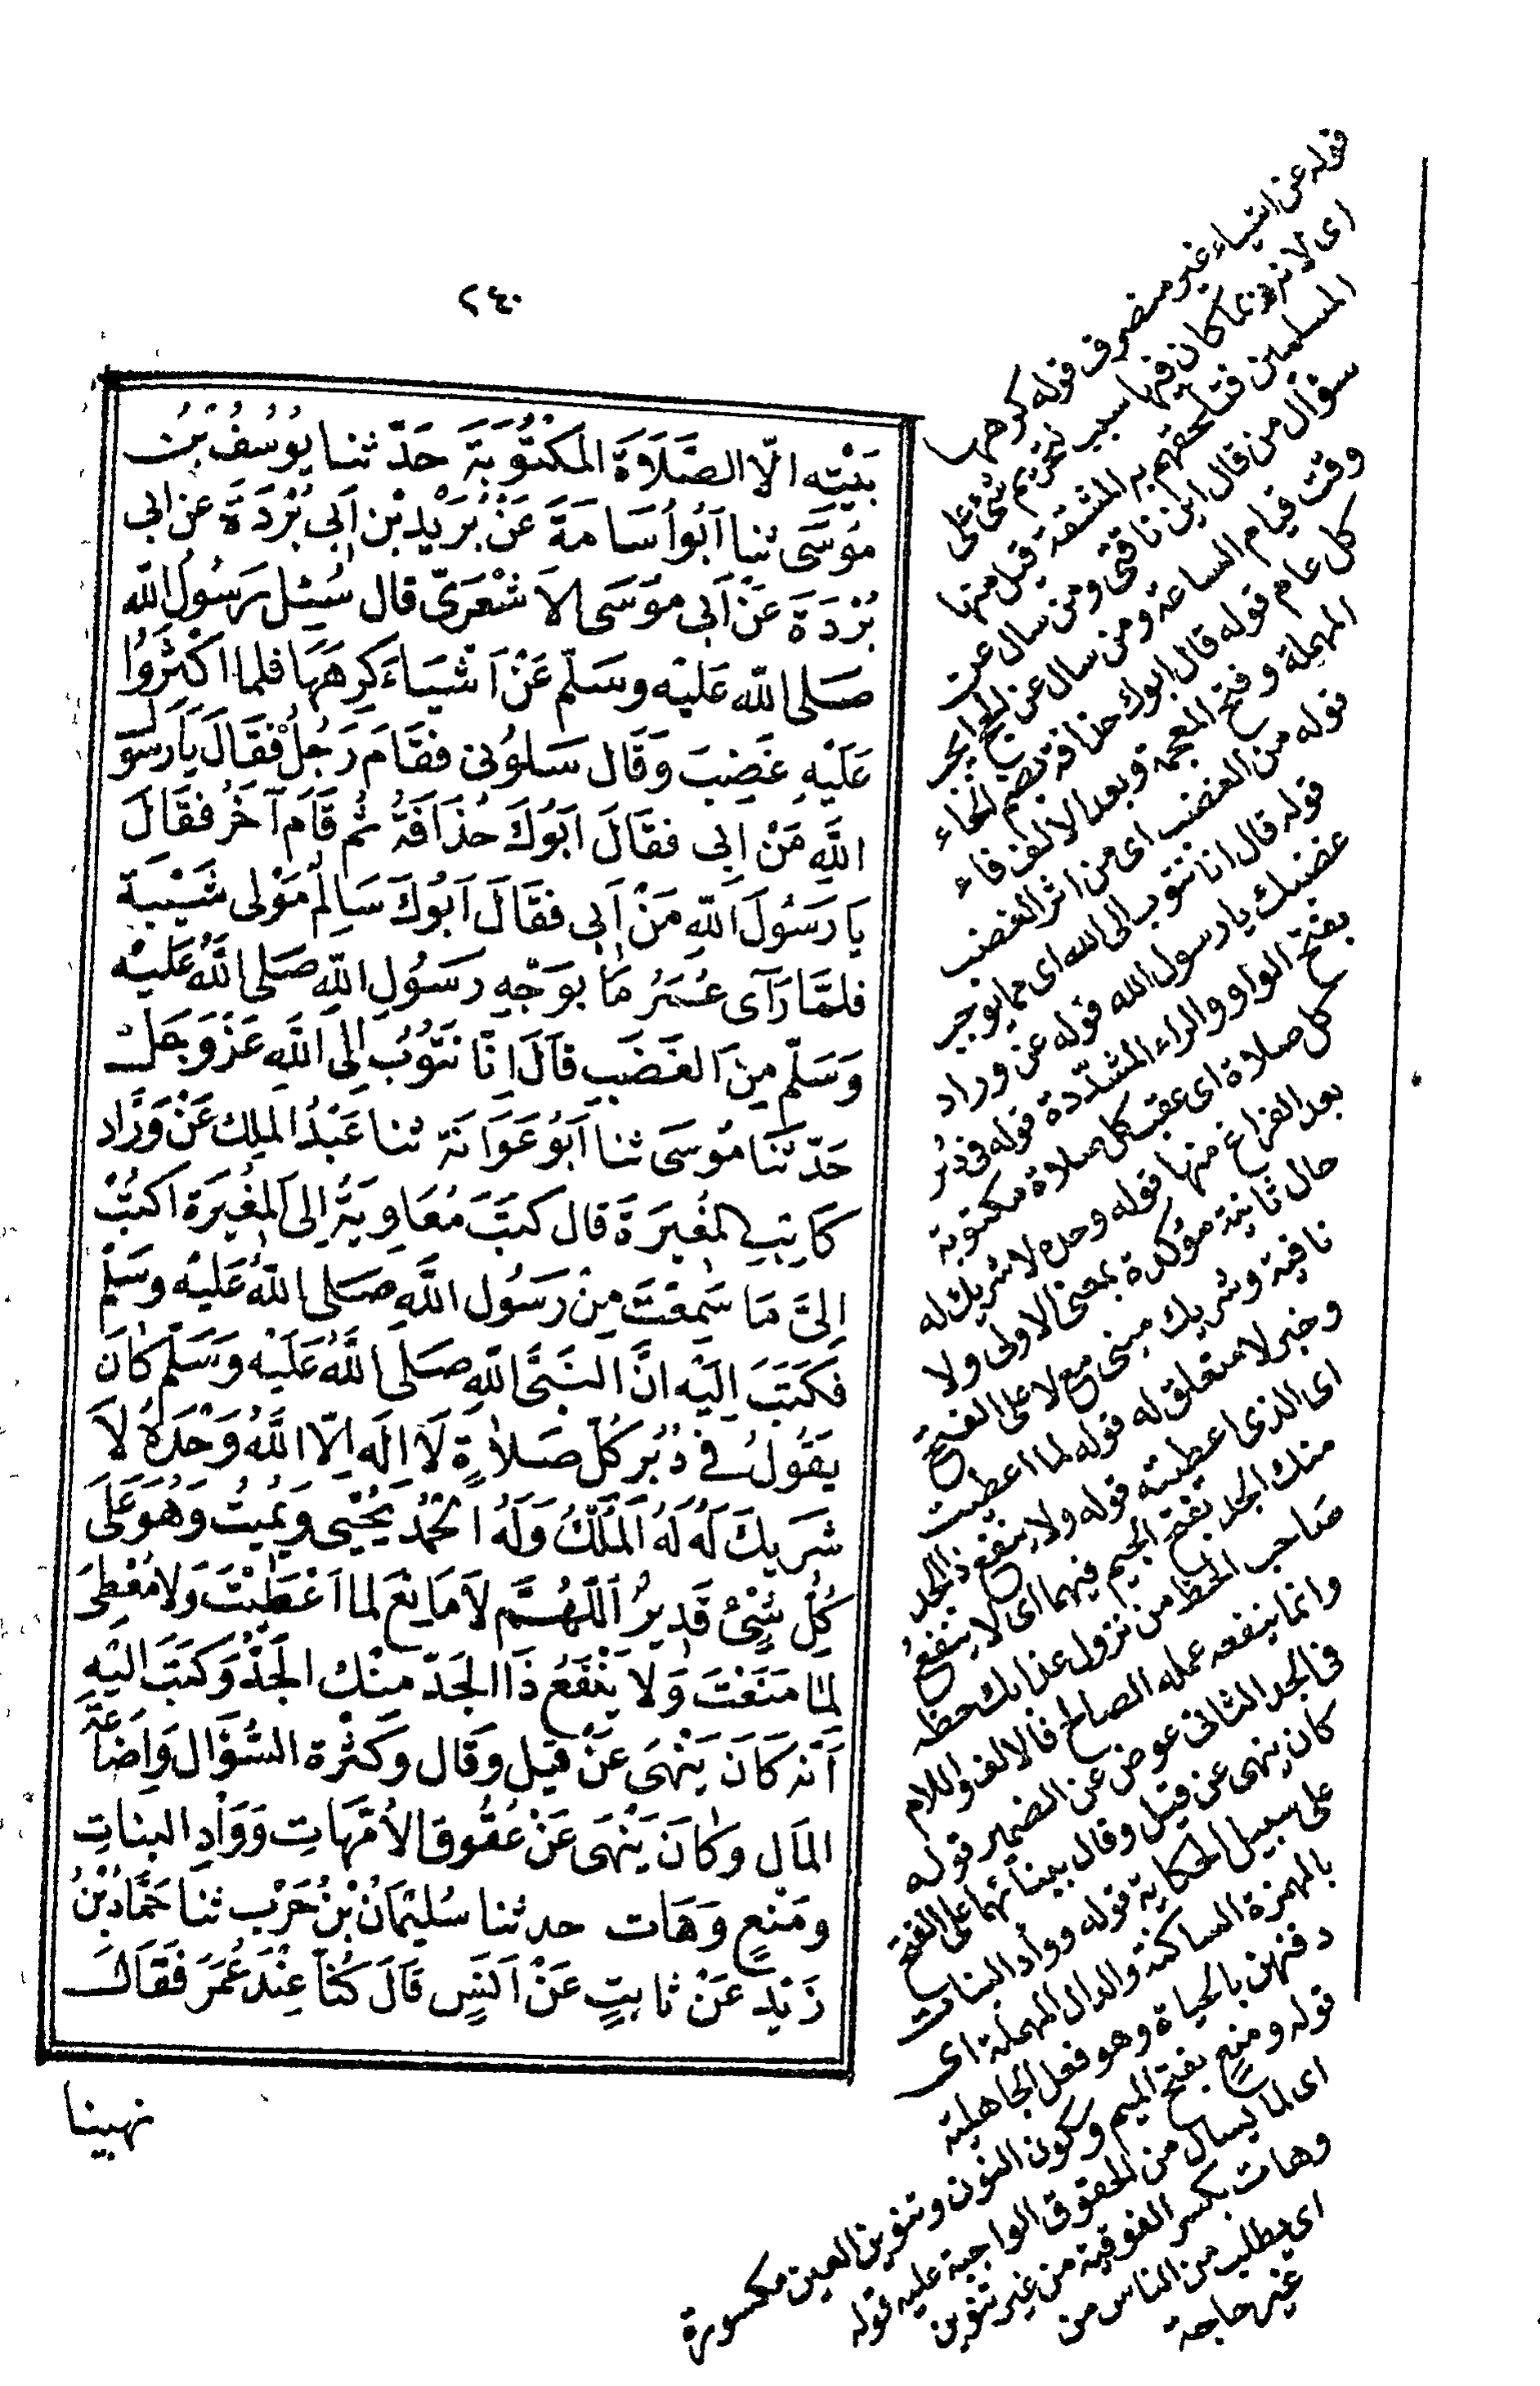 ٢٤٠
بَيْتِه الّا الصَّلَاةَ المَكْتُوبَةَ حَدّثنا يُوسُفُ بْنُ
مُوسَى ثنا اَبُو اُسَامَةَ عَنْ بُرَيْدِ بْنِ اَبِى بُرْدَةَ عن ابى
بُرْدَةَ عَنْ اَبِى مُوسَى الاَشْعَرِىّ قال سُئِلَ رَسُولُ اللّه
صَلى اللّه عَليْه وسَلّم عَنْ اَشْيَاءَ كَرِهَهَا فلما اَكْثَرُوا
عَلَيْهِ غَضِبَ وَقَال سَلُونِى فقَامَ رَجُلٌ فقَالَ يَا رَسُولَ
اللَّهِ مَنْ اَبِى فقَالَ اَبُوكَ حُذَافَةُ ثُم قَامَ آخَرُ فقَالَ
يَا رَسُولَ اللّهِ مَنْ اَبِى فقَالَ اَبُوكَ سَالِمٌ مَوْلى شَيْبَةَ
فلمَّا رَآى عُمَرُ مَا بوَجْهِ رَسُولِ اللّهِ صَلى اللَّهُ عَليْه
وَسَلّم مِنَ الغَضَبِ قَالَ اِنّا نَتُوبُ اِلَى اللَّهِ عَزّ وَجَل
حَدّثنَا مُوسَى ثنا اَبُو عَوَانَة ثنا عَبْدُ المَلِك عَنْ وَرَّاد
كَاتِبِ المُغِيرَةِ قال كتَبَ مُعَاوِيَةُ اِلى المُغِيرَةِ اكتُبْ
اِلىَّ مَا سَمِعْتَ مِنْ رَسُولِ اللَّهِ صَلى اللّهُ عَليْه وسَلم
فكَتَبَ اِلَيْه انَّ النَبَىَّ اللّهِ صَلى اللَّهُ عَلَيْه وَسَلّم كَانَ
يَقُولُ فى دُبُرِ كُلّ صَلاَةٍ لَا اِلَه اِلّا اللَّهُ وَحْدَهُ لاَ
شَرِيكَ لَهُ لَهُ المُلْكُ وَلَهُ الحَمْدُ يُحْيِى وَيُمِيتُ وَهُوَ عَلَى
كُلِّ شَىْءٍ قَدِيرٌ اَللّهُمَّ لاَ مَانِعَ لما اَعْطَيْتَ وَلا مُعْطِىَ
لِمَا مَنَعْتَ وَلا يَنْفَعُ ذَا الجَدّ مِنْك الجَدُّ وَكتَبَ اليْهِ
اَنّه كَانَ يَنْهَى عَنْ قِيلِ وَقَال وَكثْرة السُّؤَال وَاِضَاعَةِ
المَال وكَانَ يَنْهَى عَنْ عُقُوق الأُمَّهَاتِ وَوَأْدِ البنَاتِ
ومَنْعٍ وَهَات حدثنا سُليْمَانُ بْنُ حَرْب ثنا حَمَّادُ بْنُ
زَيْد عَنْ ثابتٍ عَنْ اَنَسٍ قَالَ كُنّا عِنْدَ عُمَرَ فَقَالَ
نهينا
قوله عن اشياء غير منصرف قوله كرهها
اى لانه ربما كان فيها سبب لتحريم شئ على
المسلمين فتلحقهم به المشقة قيل منها
سؤال من قال اين ناقتى ومن سال عن
وقت قيام الساعة ومن سال عن الحج ايجب
كل عام قوله قال ابوك حذافة بضم الحاء
المهملة وفتح المعجمة وبعد الالف فاء
قوله من الغضب اى من اثر الغضب
قوله قال انا نتوب الى الله اى مما يوجب
غضبك يا رسول الله قوله عن وراد
بفتح الواو والراء المشدّدة قوله فى دُبر
كل صلاة اى عقب كل صلاة مكتوبة
بعد الفراغ منها قوله وحده لا شريك له
حال ثانية مؤكدة بمعنى الاولى ولا
نافية وشريك مبنى مع لا على الفتح
وخبر لا متعلق له قوله لما اعطيت
اى الذى اعطيته قوله ولا ينفع ذا الجد
منك الجد بفتح الجيم فيهما اى لا ينفع
صاحب الحظ من نزول عذابك حظه
وانما ينفعه عمله الصالح فالالف واللام
فى الجد الثانى عوض عن الضمير قوله
كان ينهى عن قيل وقال ببنائهما على الفتح
على سبيل الحكاية قوله ووأد البنات
بالهمزة الساكنة والدال المهملة اى
دفنهن بالحياة وهو فعل الجاهلية
قوله ومنعٍ بفتح الميم وسكون النون وتنوين العين مكسورة
اى لما يسال من الحقوق الواجبة عليه قوله
وهات بكسر الفوقية من غير تنوين
اى يطلب من الناس من
غير حاجة